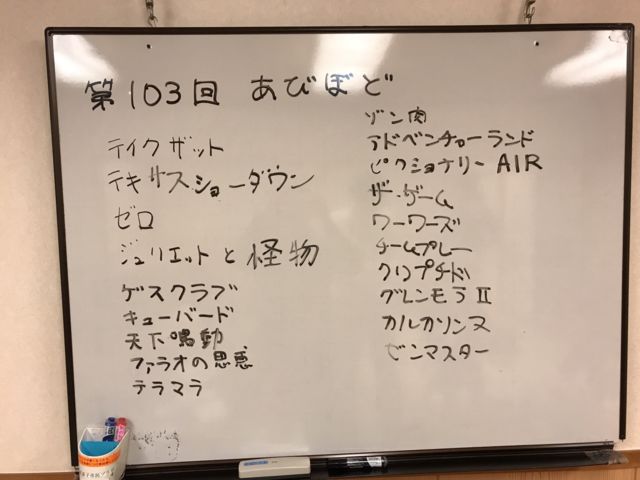 第103回 あびぼど
テイクザット
テキサスショーダウン
ゼロ
ジュリエットと怪物
ゲスクラブ
キューバード
天下鳴動
ファラオの思惑
テラマラ
ゾン肉
アドベンチャーランド
ピクショナリー AIR
ザ・ゲーム
ワーワーズ
チームプレー
クリプチド
グレンモラⅡ
カルカソンヌ
ゼンマスター